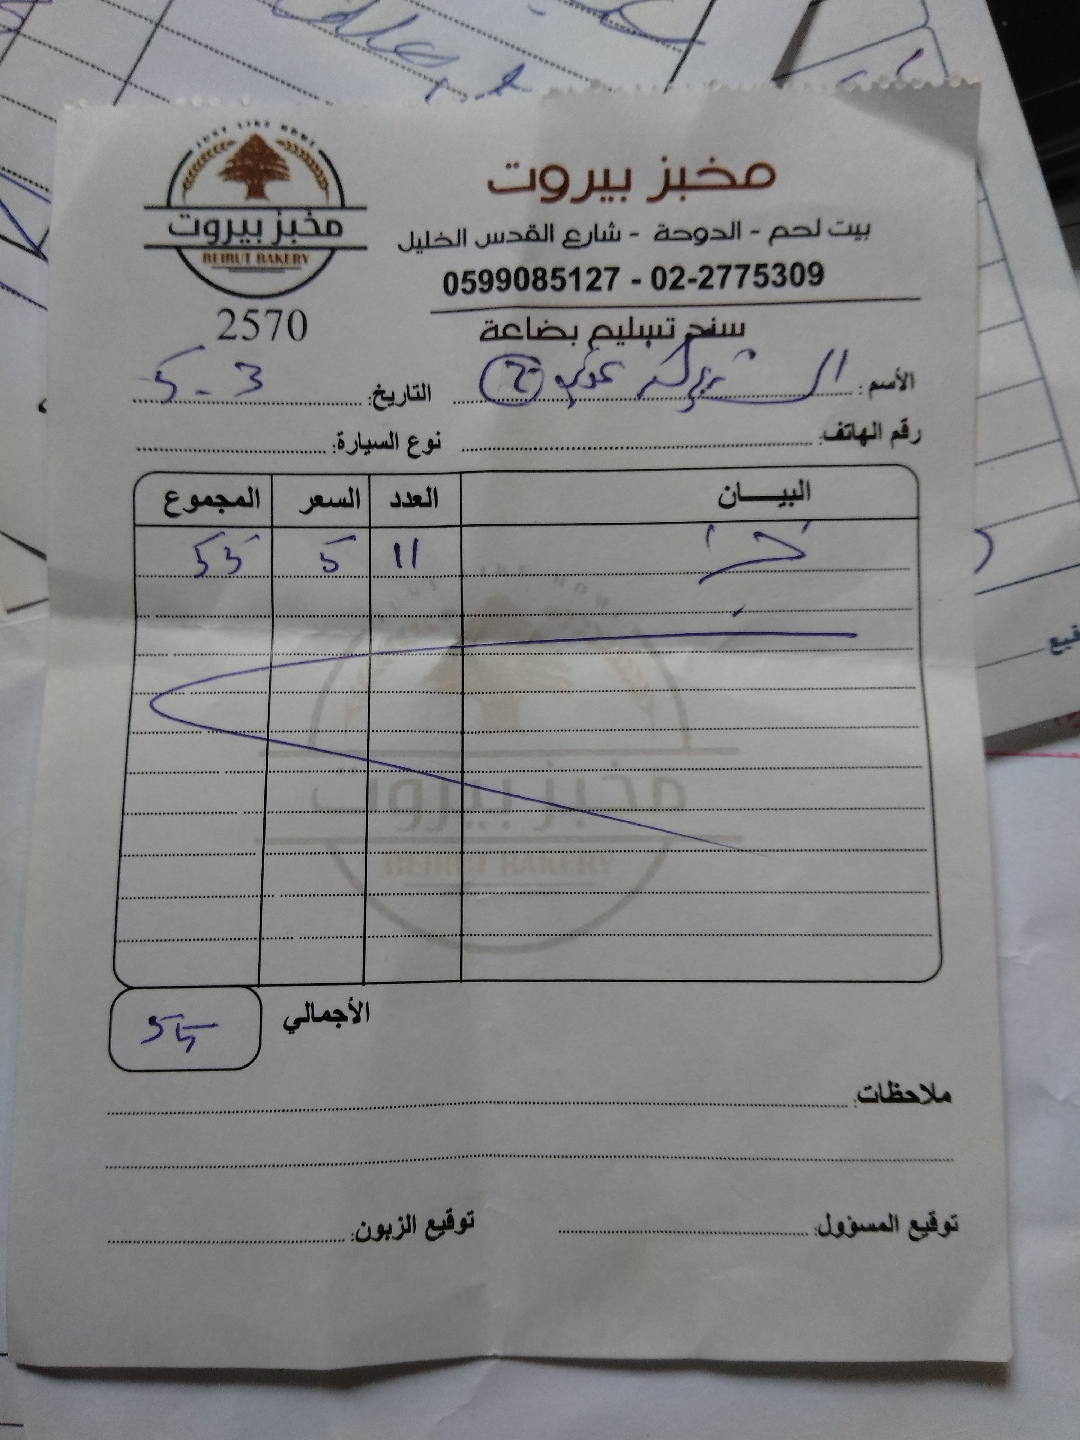 JUST LIKE HOME
مخبز بيروت
BEIRUT BAKERY
2570
مخبز بيروت
بيت لحم - الدوحة - شارع القدس الخليل
0599085127 - 02-2775309
سند تسليم بضاعة
الأسم:
التاريخ: 3 - 5
رقم الهاتف:
نوع السيارة:
البيـــان العدد السعر المجموع
11 5 55
JUST LIKE HOME
مخبز بيروت
BEIRUT BAKERY
الأجمالي 55
ملاحظات:
توقيع المسؤول: توقيع الزبون: